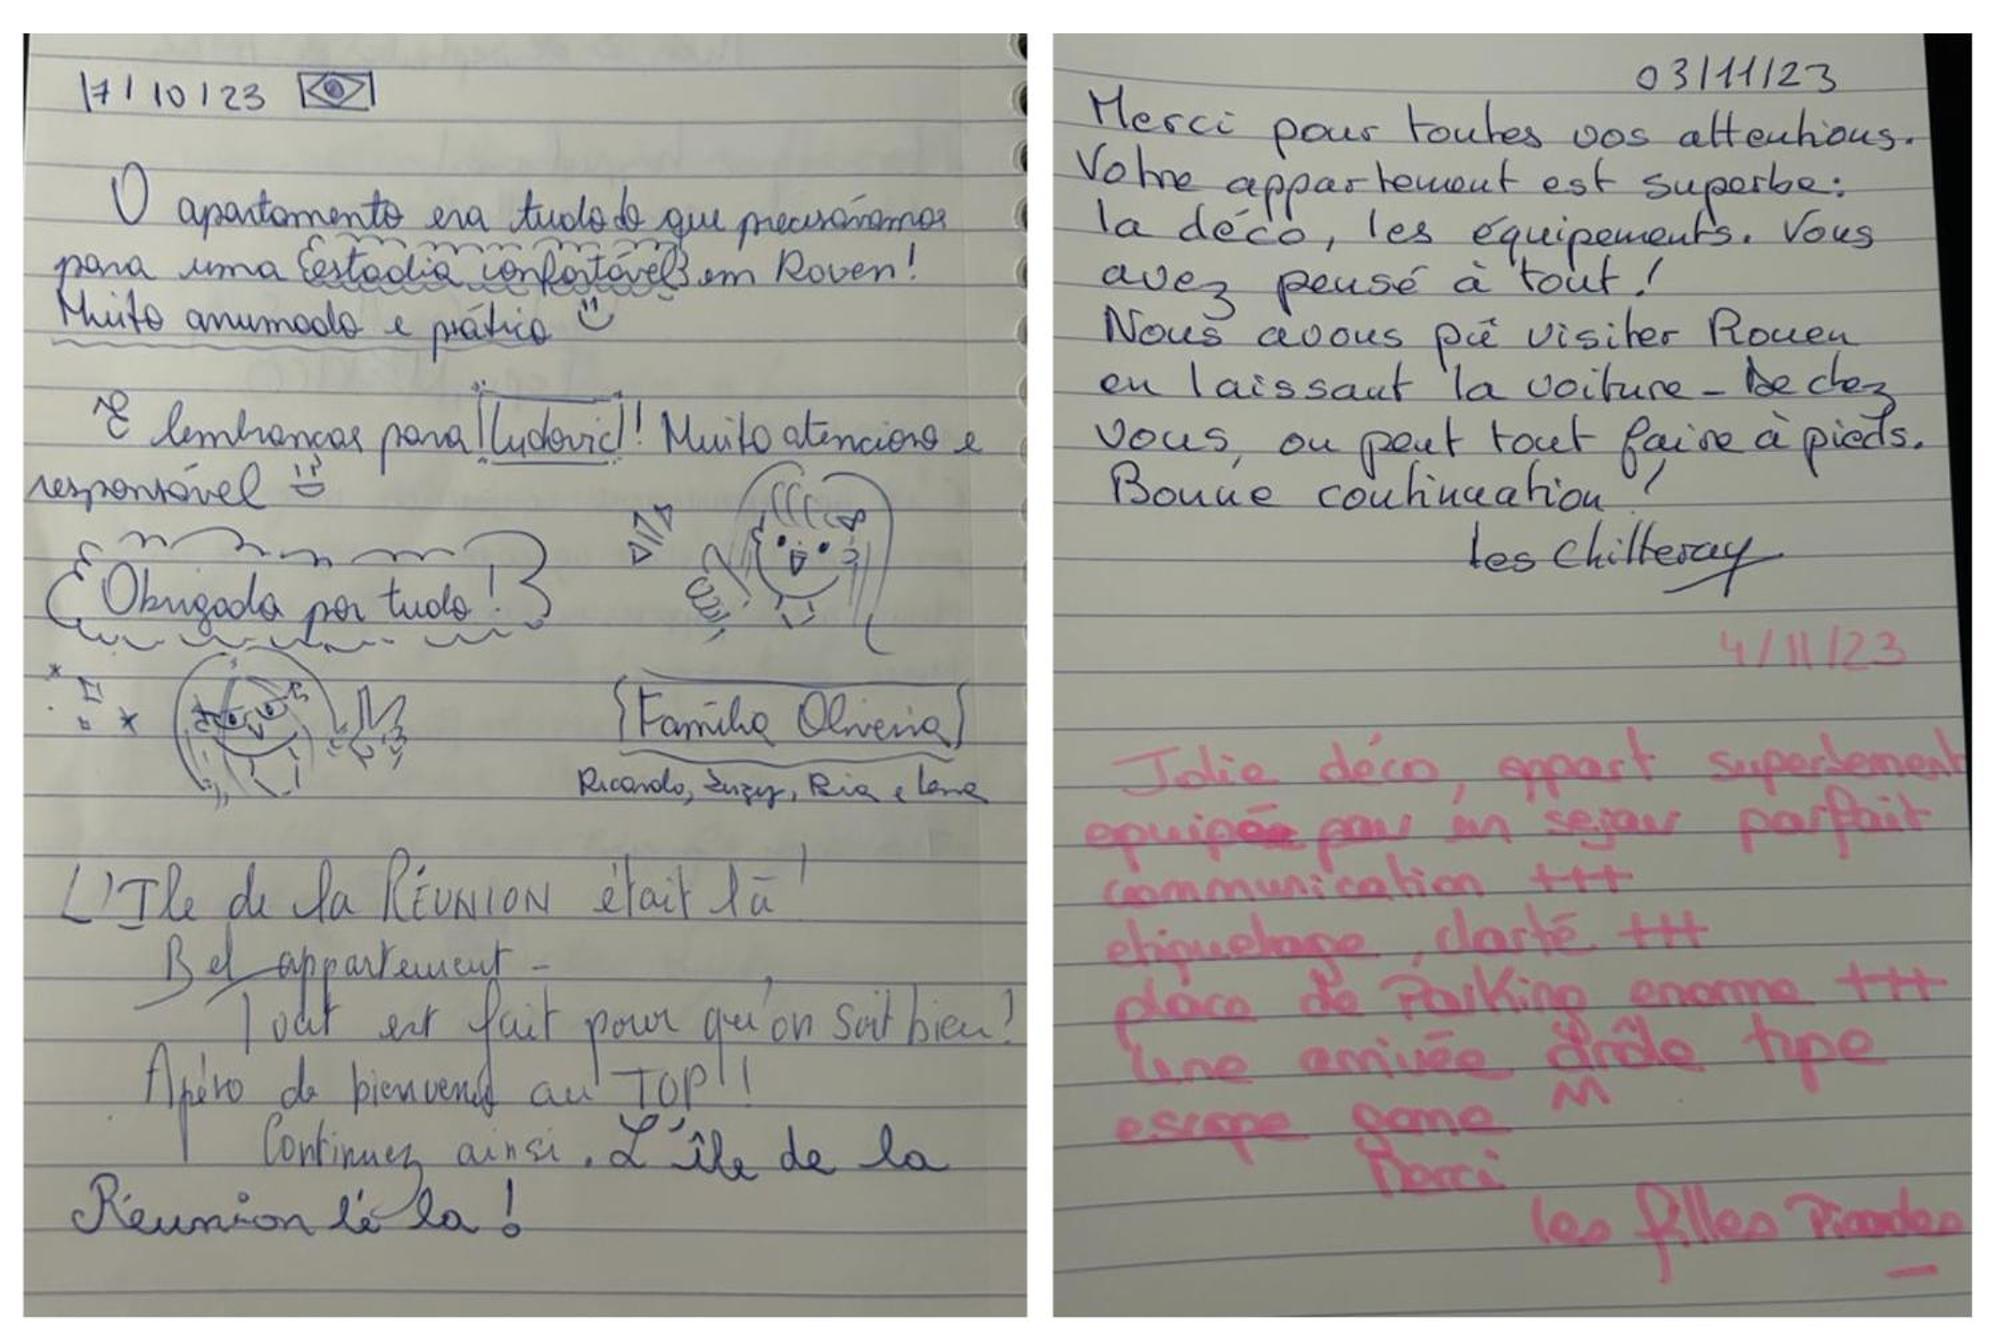 17/10/23
O apartamento era tudo do que precisávamos
para uma estadia confortável em Rouen!
Muito arrumado e prático
E lembranças para Ludovic! Muito atencioso e
responsável
Obrigada por tudo!
Família Oliveira
Ricardo, Suzy, Bia e Lena
L'Ile de la RÉUNION était là!
Bel appartement -
Tout est fait pour qu'on soit bien!
Apéro de bienvenue au TOP!!
Continuez ainsi. L'île de la
Réunion lé la!
03/11/23
Merci pour toutes vos attentions.
Votre appartement est superbe:
la déco, les équipements. Vous
avez pensé à tout!
Nous avons pû visiter Rouen
en laissant la voiture - De chez
vous, on peut tout faire à pieds.
Bonne continuation!
Les
4/11/23
Jolie déco, appart superbement
equipée pour un sejour parfait
communication +++
etiquetage, clarté +++
place de Parking enorme +++
Une arrivée drôle type
escape game ^^
Merci
les filles Picardes